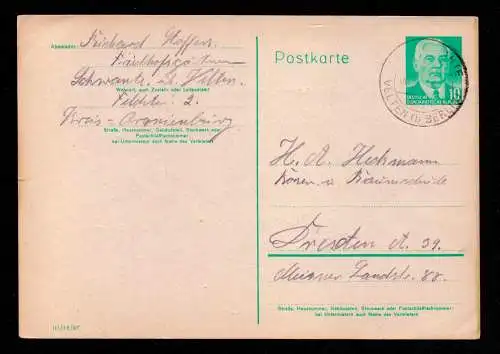 Absender: Richard
Schwante, üb. Velten.
Wohnort, auch Zustell- oder Leitpostamt
Kreis - Oranienburg
Straße, Hausnummer, Gebäudeteil, Stockwerk oder
Postschließfachnummer
bei Untermietern auch Name des Vermieters
Postkarte
DEUTSCHE
DEMOKRATISCHE REPUBLIK
10
VELTEN (b BERLIN)
H. A.
Rosen- u. Baumschule
Dresden A. 29.
Meissner Landstr. 88.
Straße, Hausnummer, Gebäudeteil, Stockwerk oder Postschließfachnummer;
bei Untermietern auch Name des Vermieters